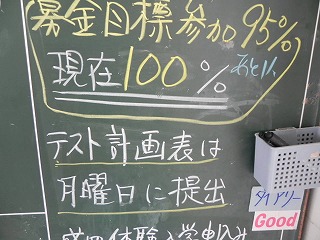 募金目標参加95%
現在100%
テスト計画表は
月曜日に提出
ダイアリー
Good
体験入学申込み